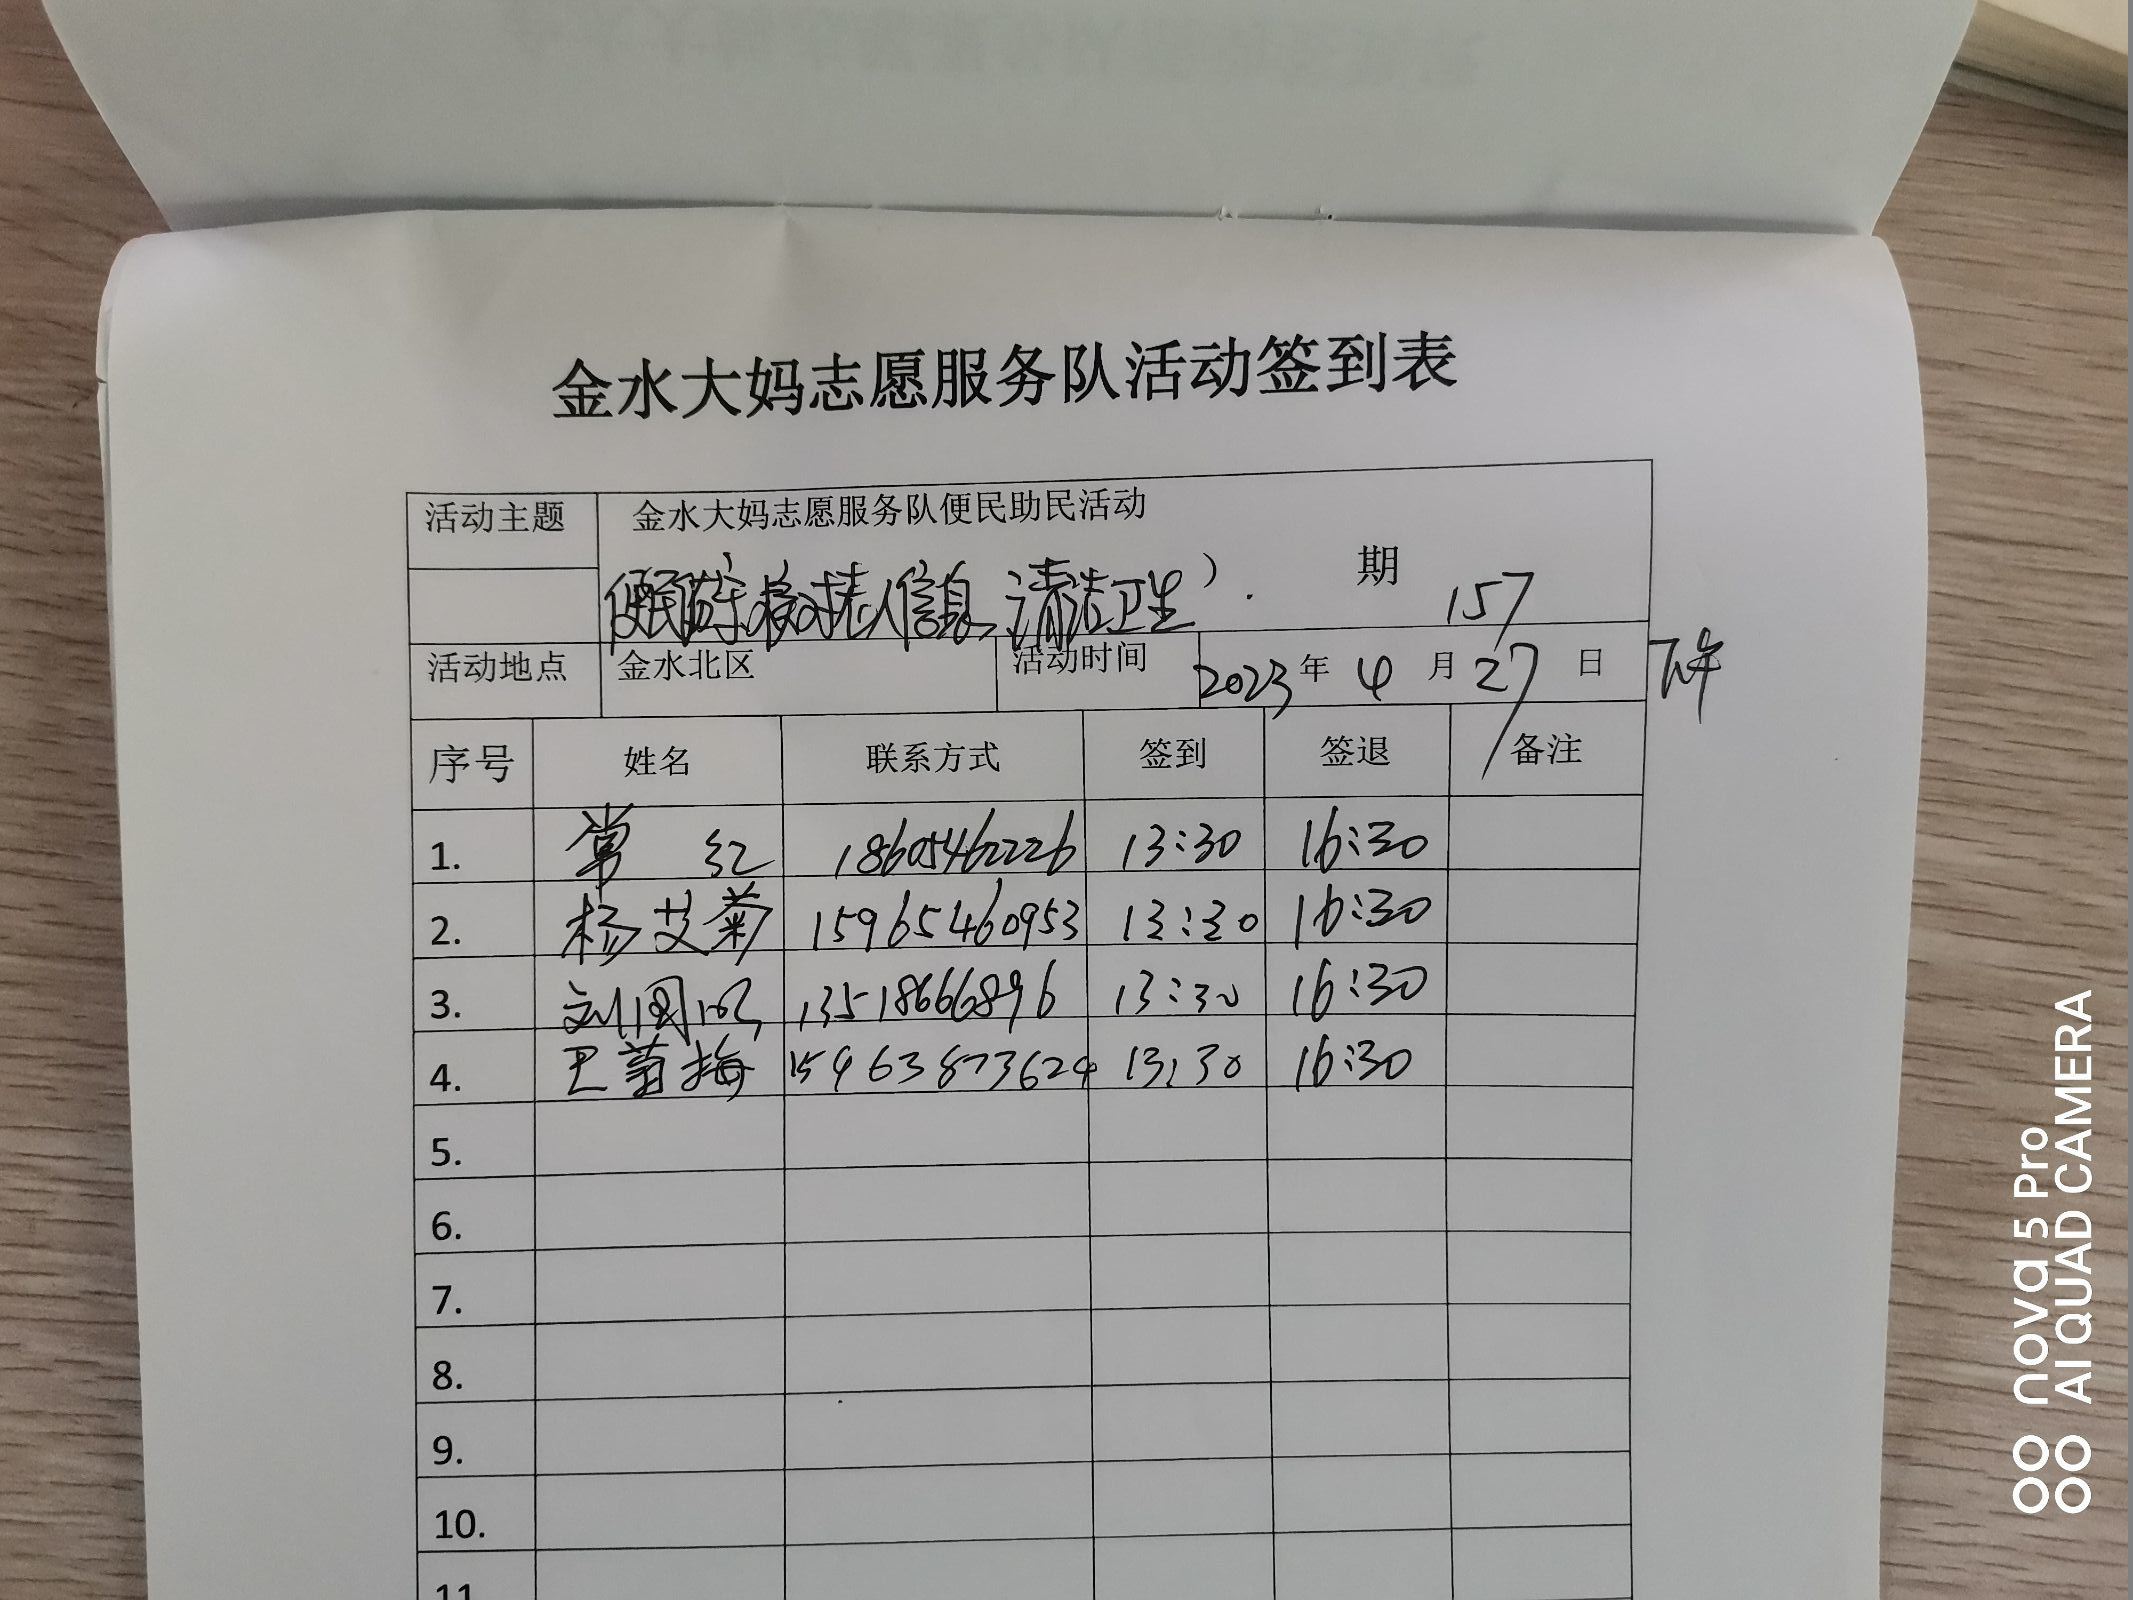 金水大妈志愿服务队活动签到表
活动主题 金水大妈志愿服务队便民助民活动
便民 核对老人信息、清洁卫生） 期 157
活动地点 金水北区 活动时间 2023 年 4 月 27 日 下午
序号 姓名 联系方式 签到 签退 备注
1. 常红 18605462226 13:30 16:30
2. 杨艾菊 15965460953 13:30 16:30
3. 刘国 13518666896 13:30 16:30
4. 王菊梅 15963873624 13:30 16:30
5.
6.
7.
8.
9.
10.
11
nova 5 Pro
AI QUAD CAMERA